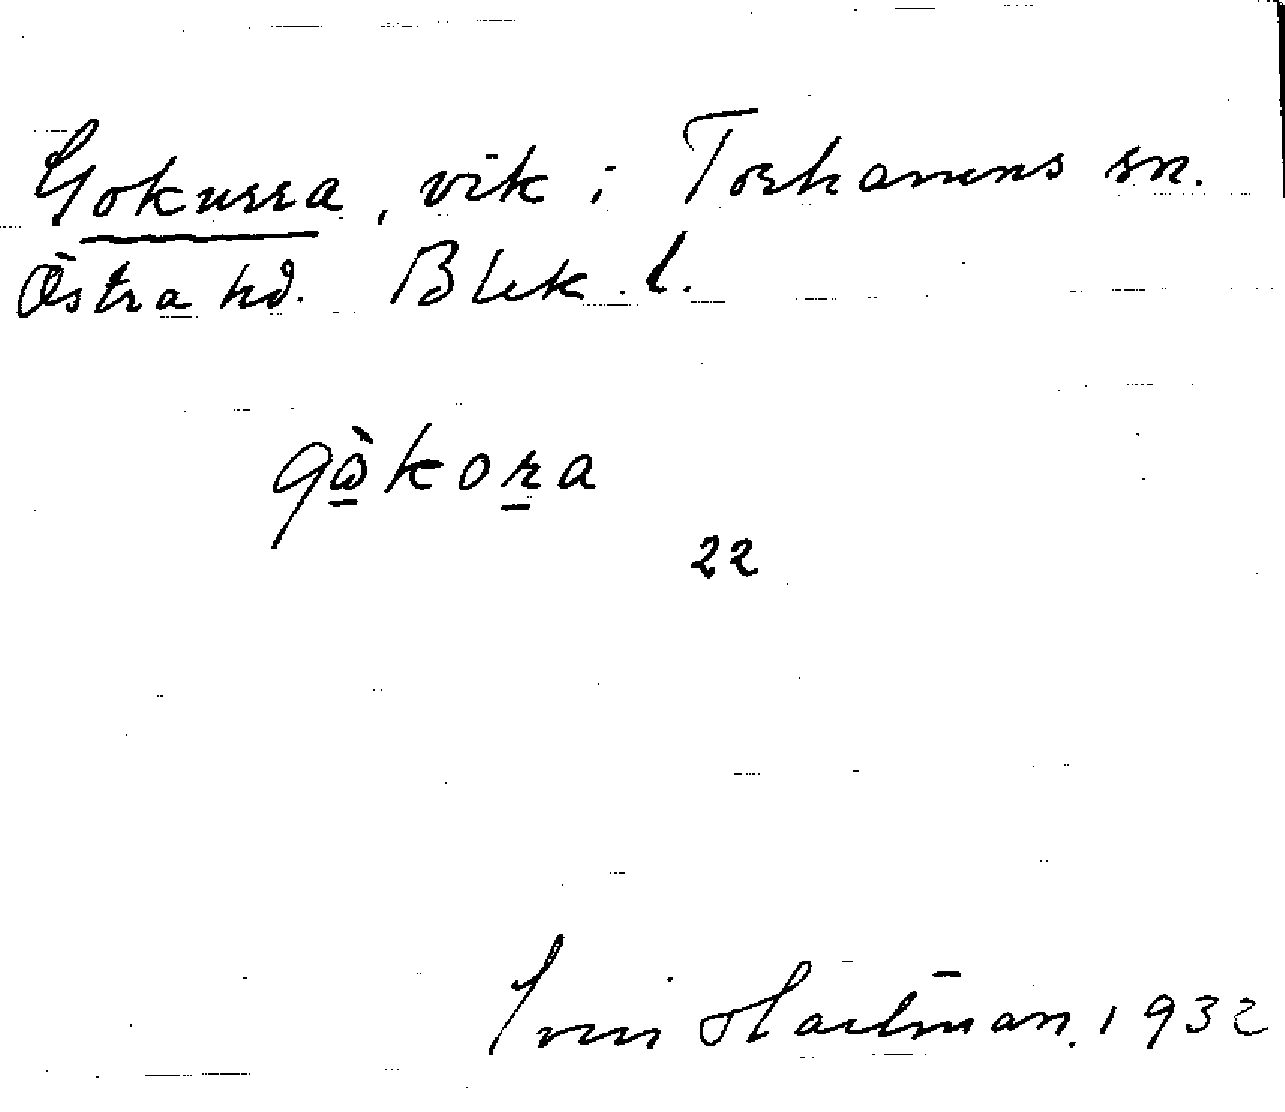 Gokurra, vik i Torhamns sn.
Östra hd. Blek. l.
gòkora
22
Hartman. 1932